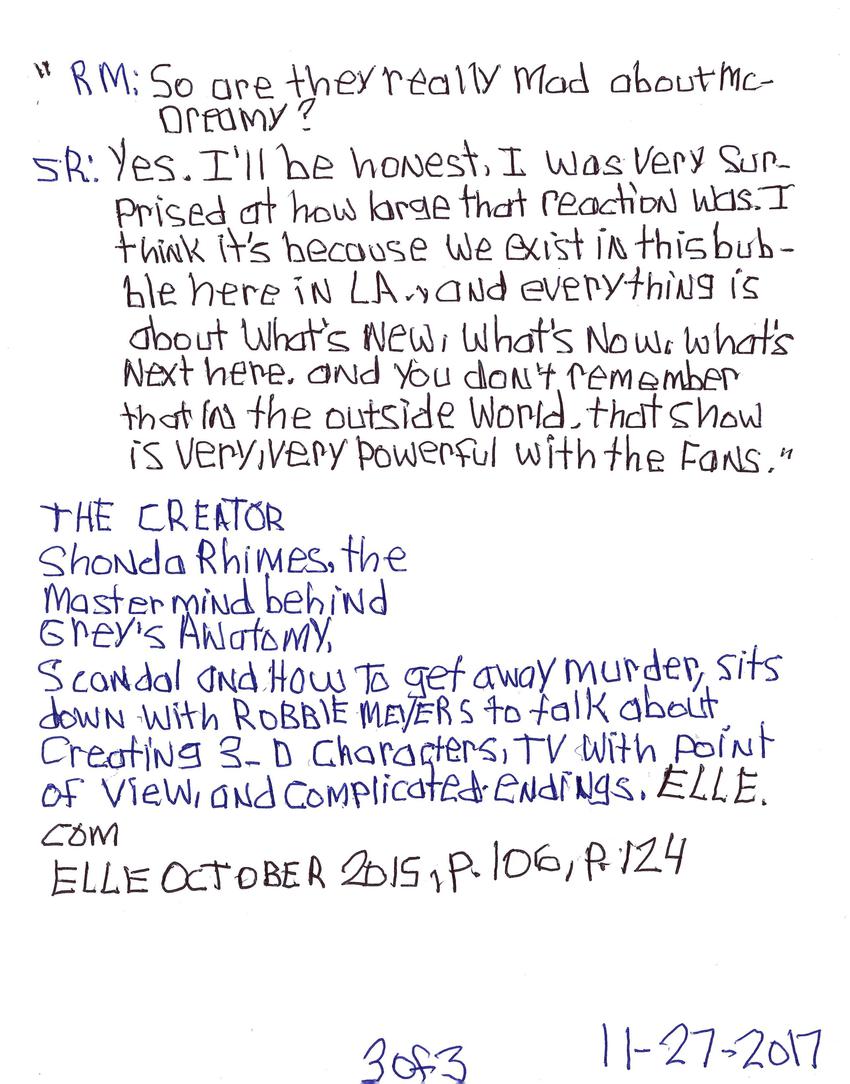 " RM: So are they really Mad about Mc-
Dreamy?
SR: Yes. I'll be honest, I was very Sur-
prised at how large that reaction was. I
think it's because we exist in this bub-
ble here in LA., and everything is
about What's New, What's Now, what's
Next here. and you don't remember
that in the outside World, that show
is very, very powerful with the Fans."
THE CREATOR
Shonda Rhimes, the
Mastermind behind
Grey's Anatomy,
Scandal and How To get away murder, sits
down with ROBBIE MEYERS to talk about
Creating 3-D Characters, TV With point
of View, and complicated endings. ELLE.
COM
ELLE OCTOBER 2015, P. 106, P. 124
3 of 3 11-27-2017